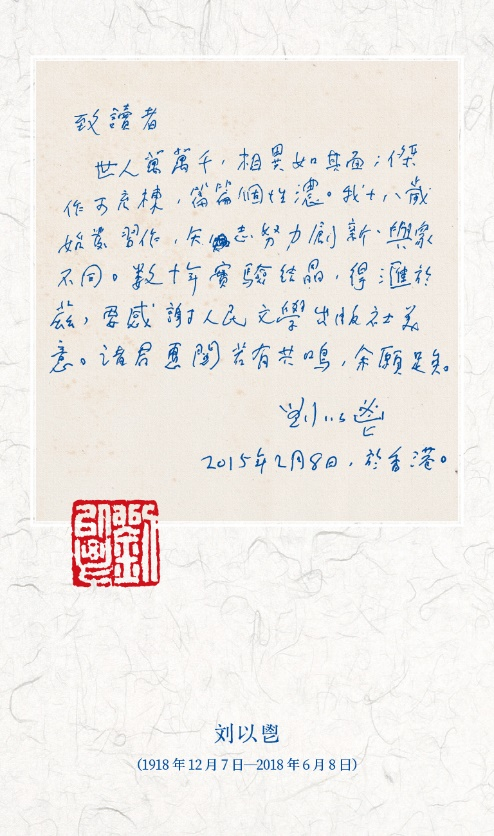 致讀者
世人萬萬千，相異如其面；傑
作可充棟，篇篇個性濃。我十八歲
始發習作，矢志努力創新、與衆
不同。數十年實驗結晶，得滙於
茲，要感謝人民文學出版社美
意。諸君惠閱若有共鳴，余願足矣。
劉以鬯
2015年2月8日，於香港。
劉以鬯印
刘以鬯
（1918 年 12 月 7 日—2018 年 6 月 8 日）